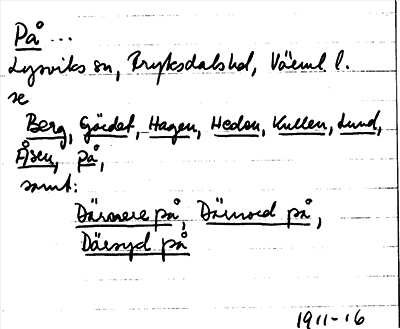 På ...
Lysviks sn, Fryksdals hd, Värml. l.
se
Berg, Gärdet, Hagen, Heden, Kullen, Lund,
Åsen, på,
samt:
Därnere på, Därnord på,
Därsyd på
1911-16